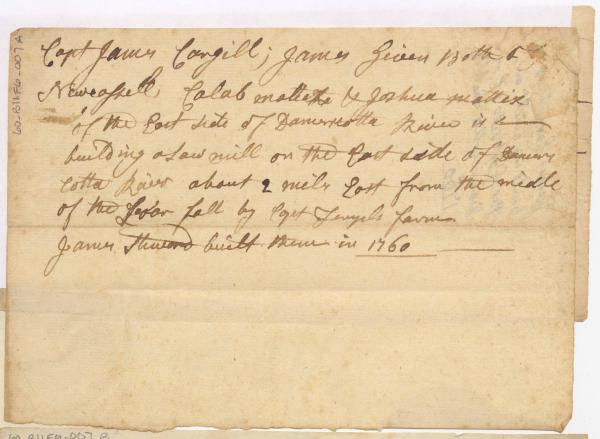 Capt James Cargill; James Given Both of
Newcassell, Calab mattax & Joshua mattix
of the East side of Damerscotta River is
building a Saw mill on the East side of Damers
cotta River about 2 mile East from the midle
of the fall by Capt farm
James built them in 1760
60-B11F6-007 A
60-B11F6-007 B